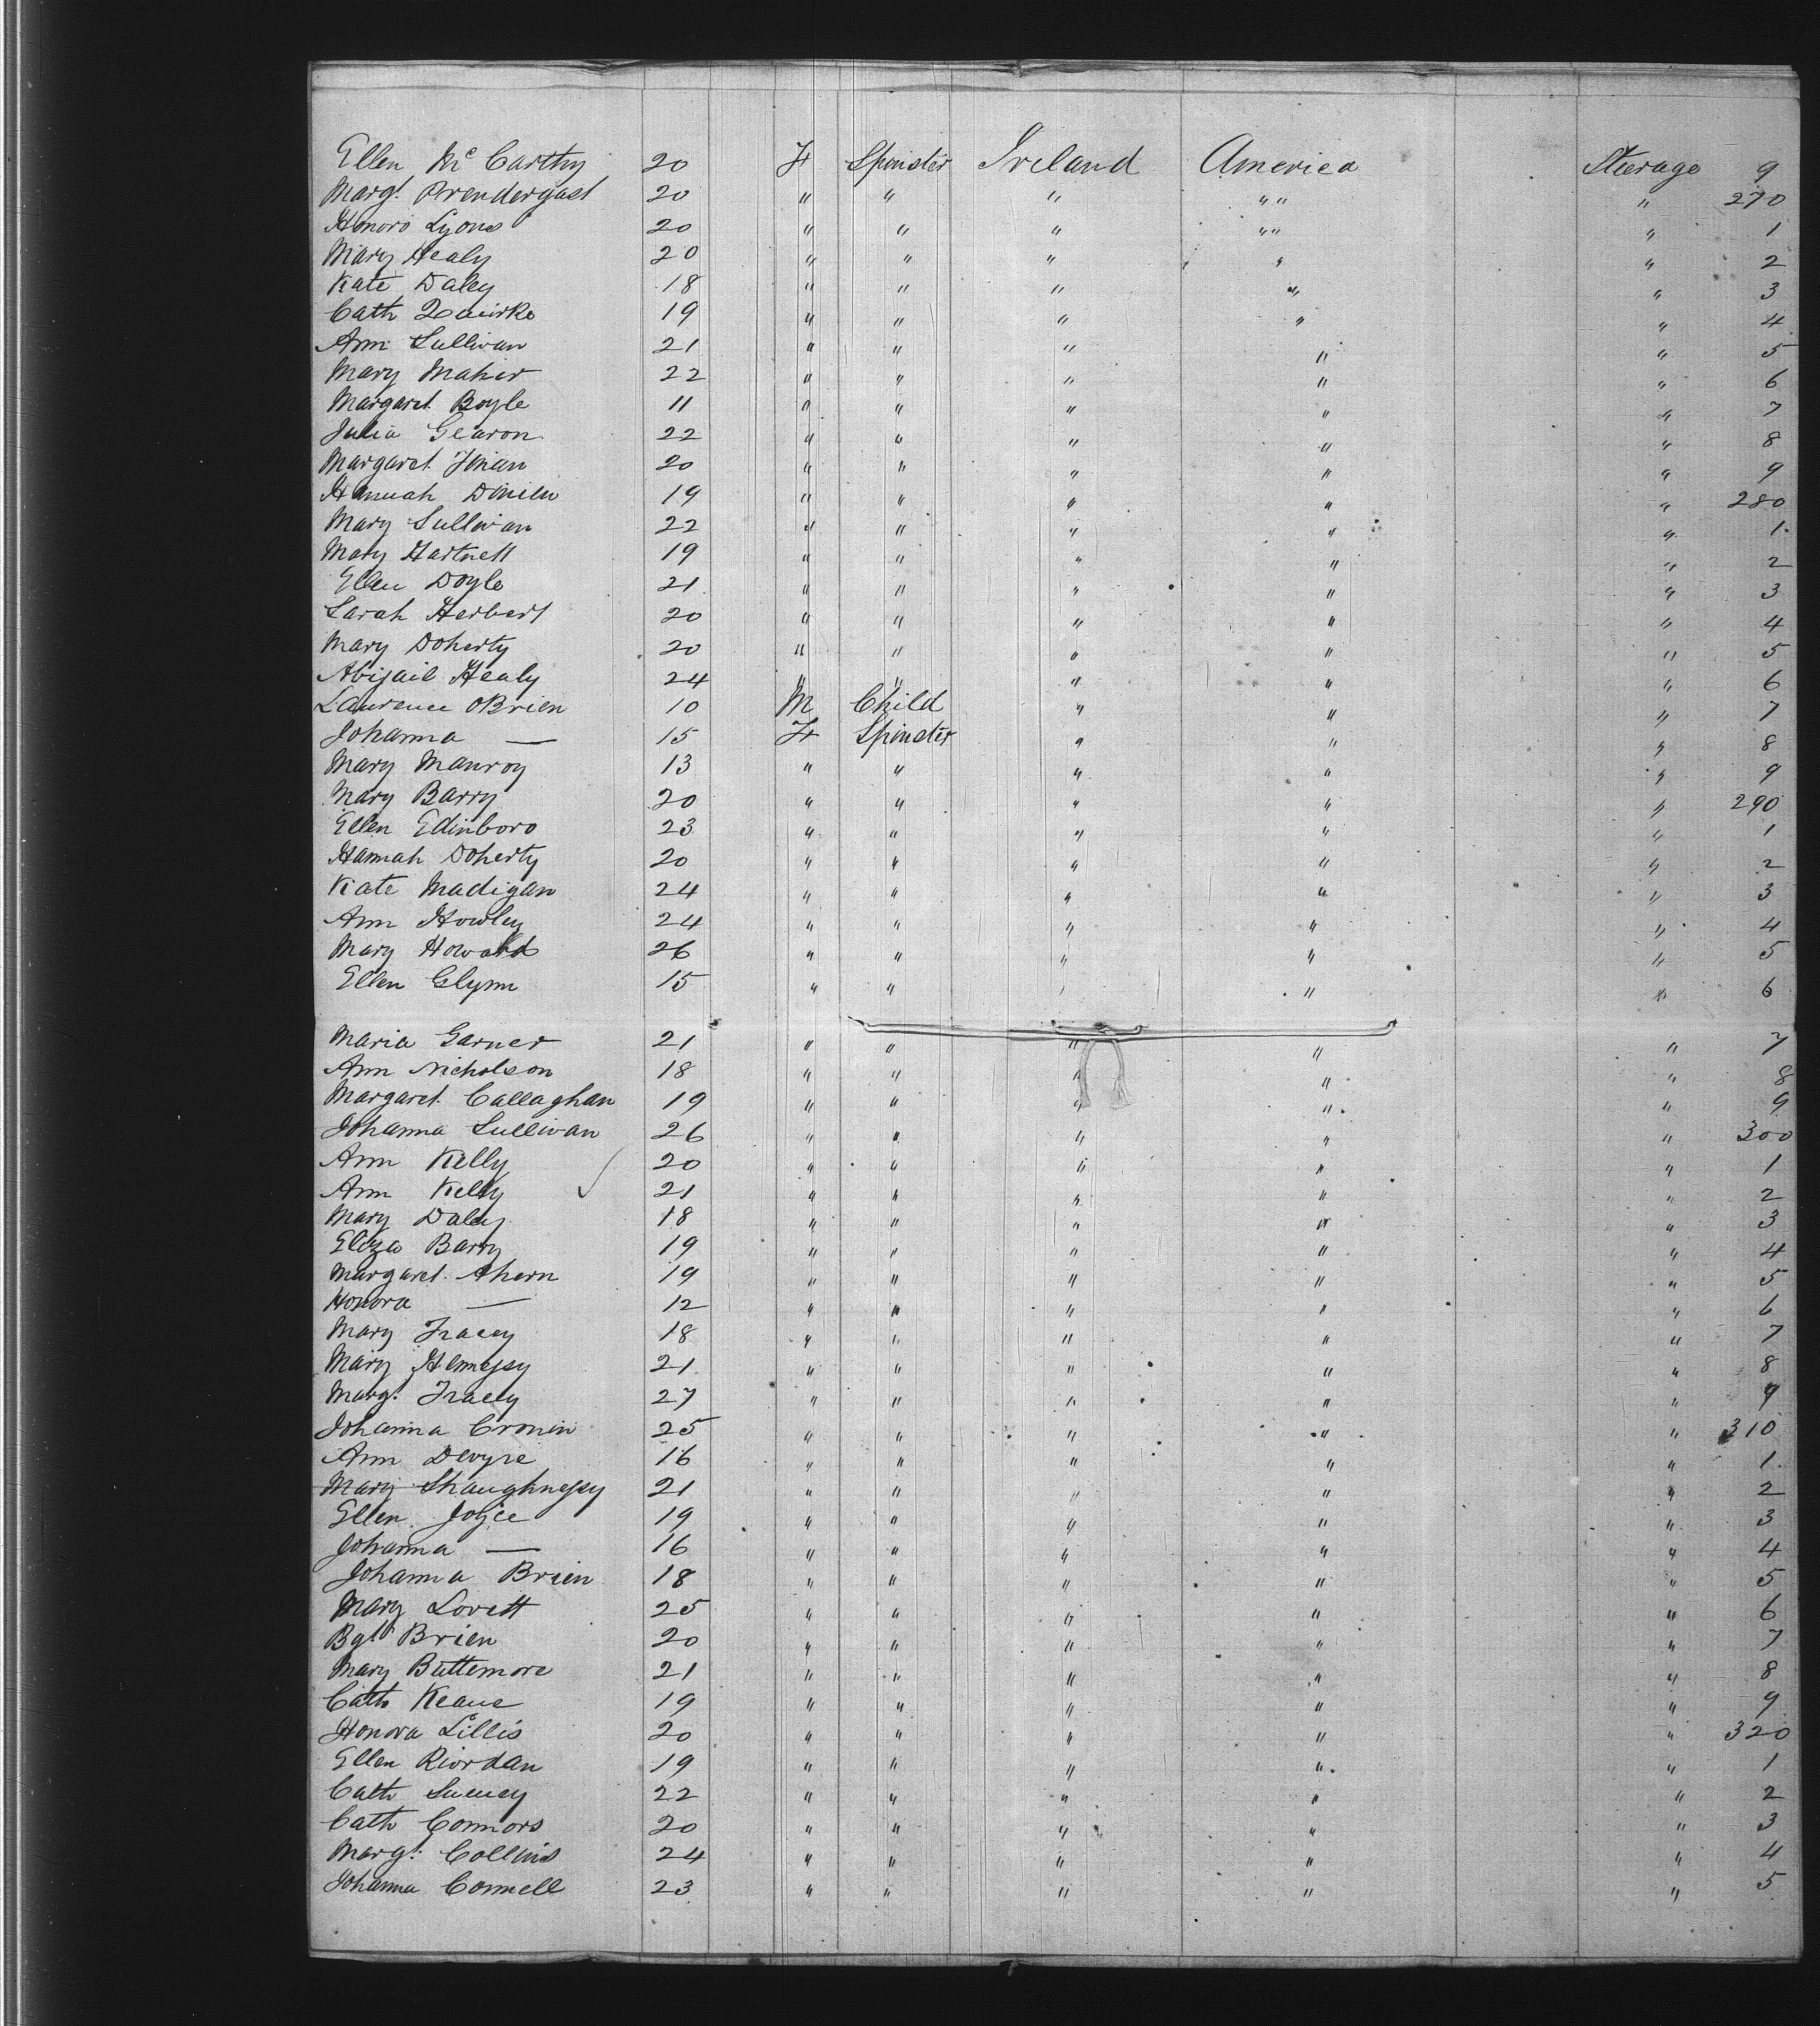 Ellen McCarthy 20 F Spinster Ireland America Steerage 9
Margt. Prendergast 20 " " " " " " 270
Honora Lyons 20 " " " " " " 1
Mary Healy 20 " " " " " 2
Kate Daley 18 " " " " " 3
Cath Quirke 19 " " " " " 4
Ann Sullivan 21 " " " " " 5
Mary Maher 22 " " " " " 6
Margaret Boyle 11 " " " " " 7
Julia Gearon 22 " " " " " 8
Margaret 20 " " " " " 9
Hannah 19 " " " " " 280
Mary Sullivan 22 " " " " " 1
Mary Hartnett 19 " " " " " 2
Ellen Doyle 21 " " " " " 3
Sarah Herbert 20 " " " " " 4
Mary Doherty 20 " " " " " 5
Abigail Healy 24 " " " " " 6
Laurence OBrien 10 M Child " " " 7
Johanna — 15 F Spinster " " " 8
Mary Manroy 13 " " " " " 9
Mary Barry 20 " " " " " 290
Ellen Edinboro 23 " " " " " 1
Hannah Doherty 20 " " " " " 2
Kate Madigan 24 " " " " " 3
Ann Howley 24 " " " " " 4
Mary Howard 26 " " " " " 5
Ellen Glynn 15 " " " " " 6
Maria Garner 21 " " " " " 7
Ann Nicholson 18 " " " " " 8
Margaret Callaghan 19 " " " " " 9
Johanna Sullivan 26 " " " " " 300
Ann Kelly 20 " " " " " 1
Ann Kelly 21 " " " " " 2
Mary Daley 18 " " " " " 3
Eliza Barry 19 " " " " " 4
Margaret Ahern 19 " " " " " 5
Honora — 12 " " " " " 6
Mary Tracey 18 " " " " " 7
Mary Hennessy 21 " " " " " 8
Margt. Tracey 27 " " " " " 9
Johanna Cronin 25 " " " " " 310
Ann 16 " " " " " 1
Mary Shaughnessy 21 " " " " " 2
Ellen Joyce 19 " " " " " 3
Johanna — 16 " " " " " 4
Johanna Brien 18 " " " " " 5
Mary Lovett 25 " " " " " 6
Bgt Brien 20 " " " " " 7
Mary Buttemore 21 " " " " " 8
Cath Keane 19 " " " " " 9
Honora Lillis 20 " " " " " 320
Ellen Riordan 19 " " " " " 1
Cath Sweeney 22 " " " " " 2
Cath Connors 20 " " " " " 3
Margt. Collins 24 " " " " " 4
Johanna Connell 23 " " " " " 5